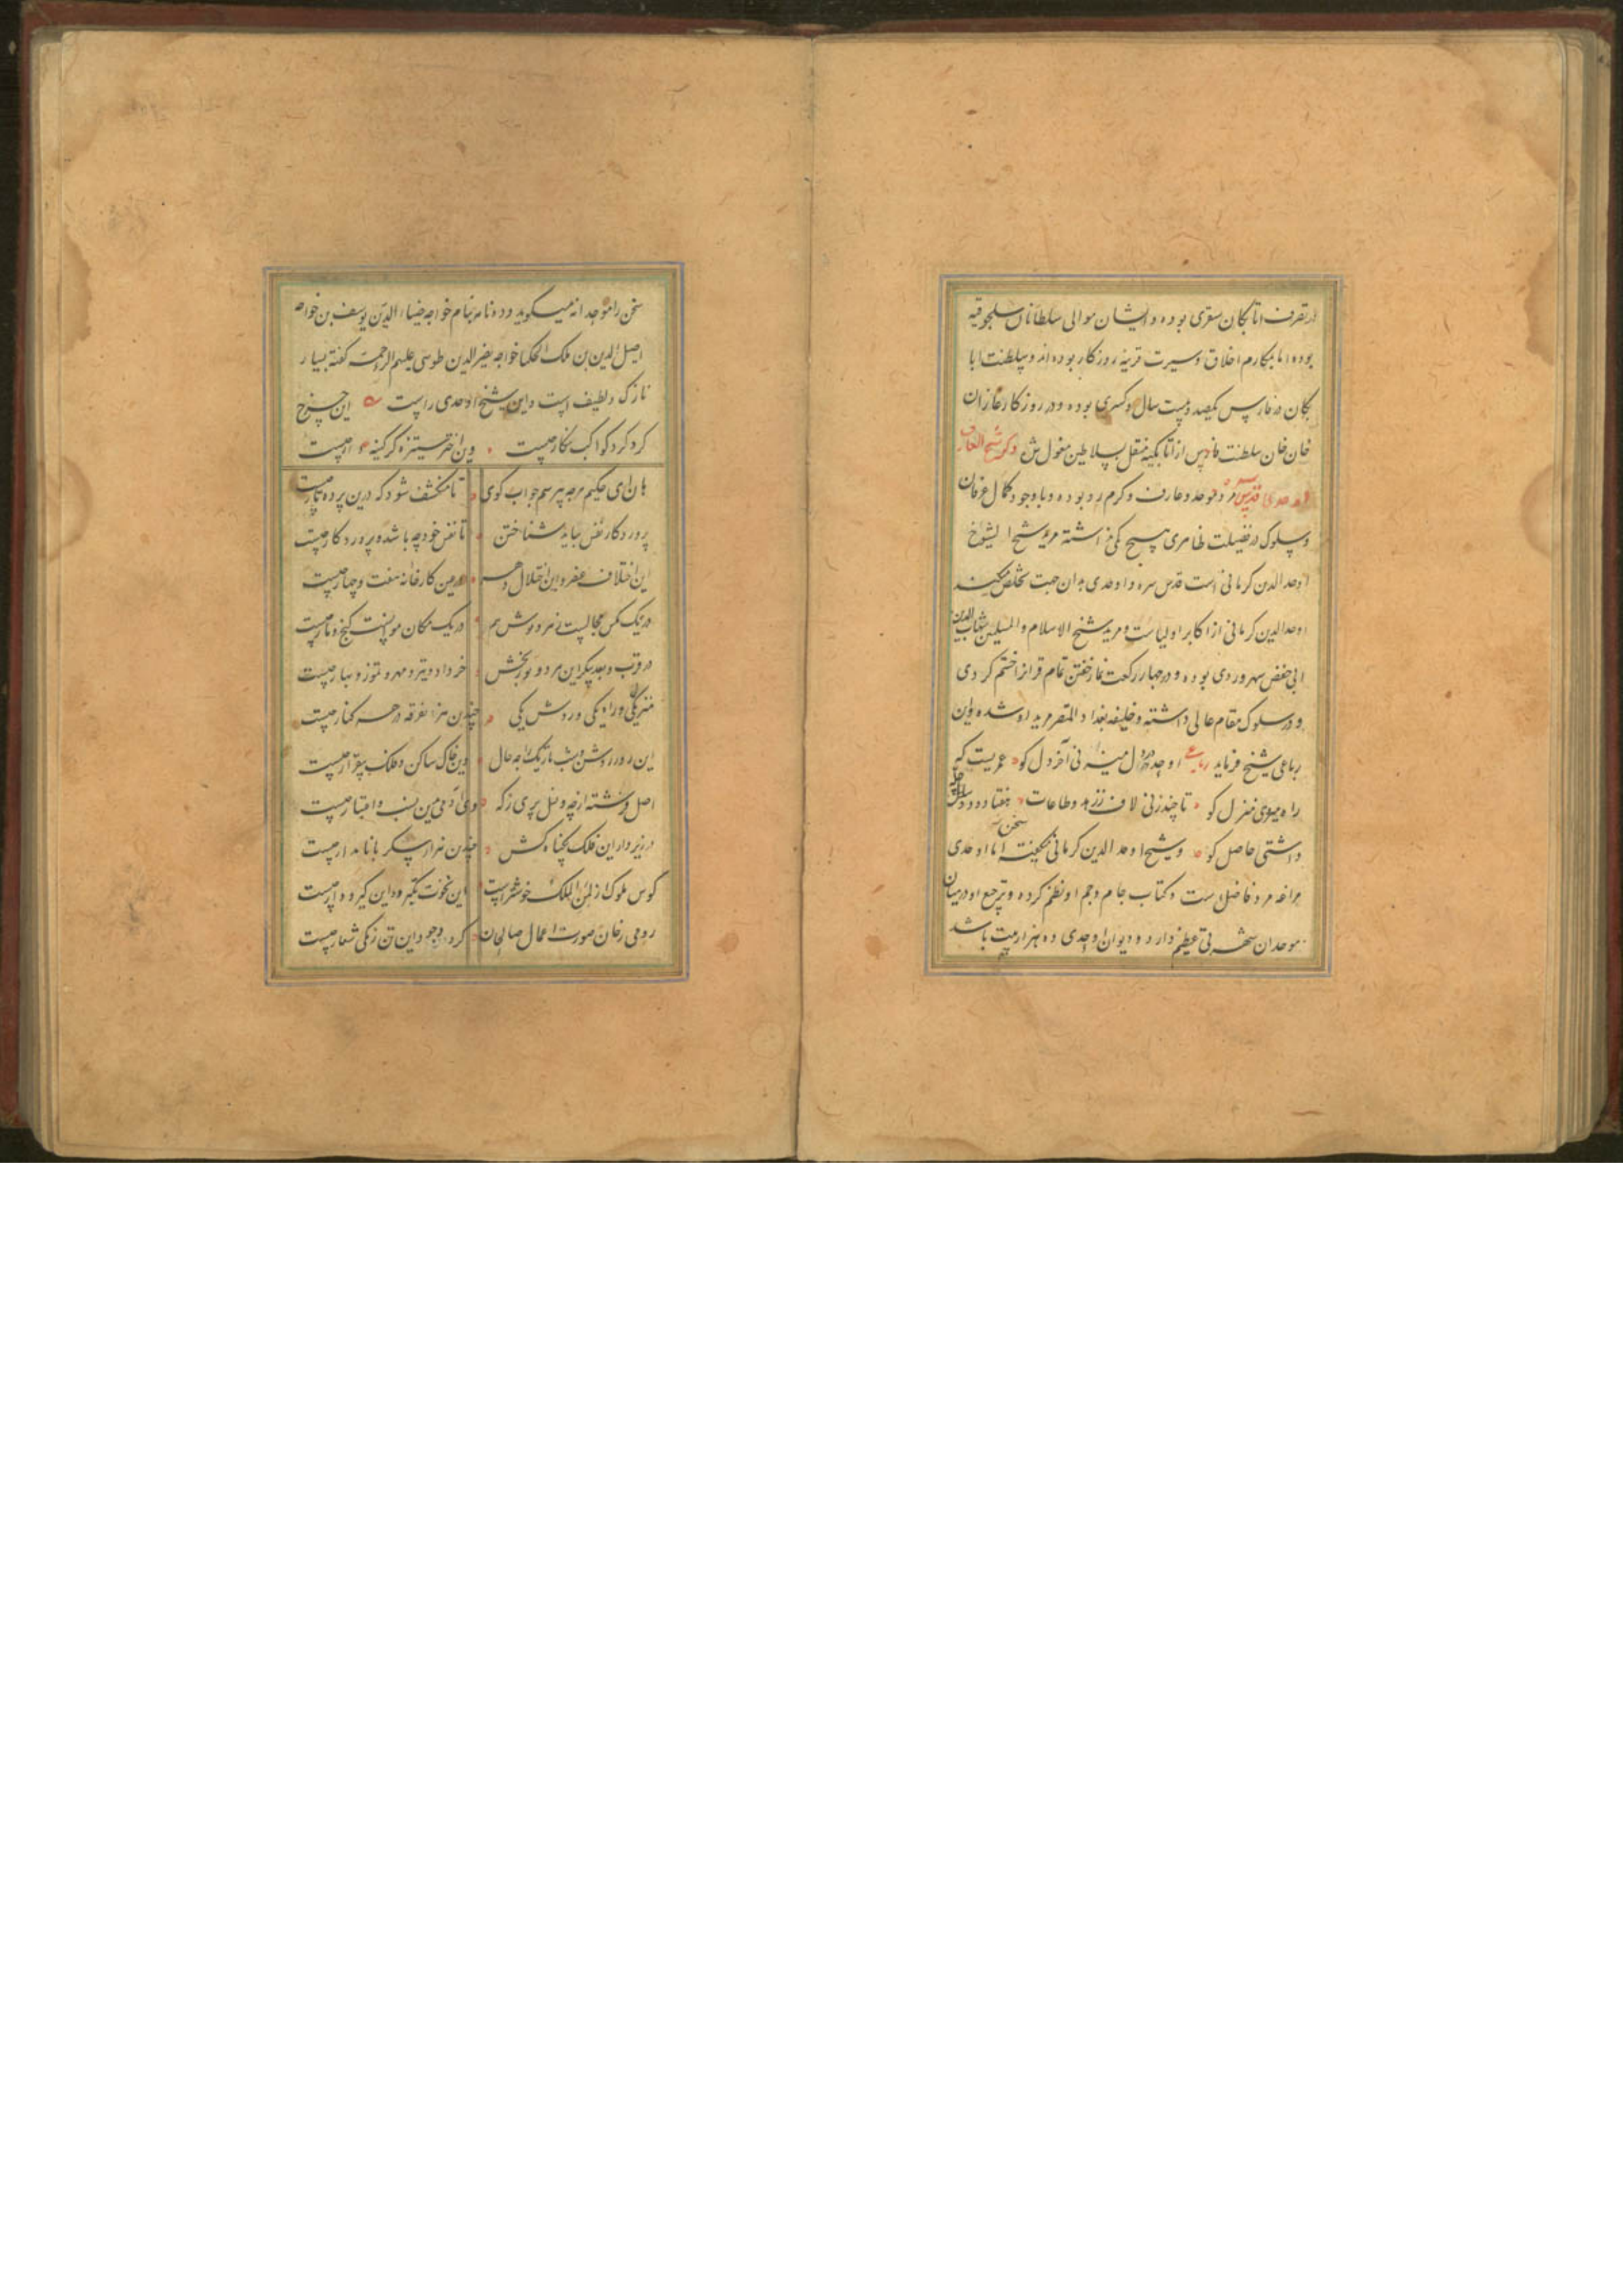 در تصرف اتابکان سغری بوده و ایشان موالی سلطانان سلجوقیه
بوده‌اند اما بمکارم اخلاق و سیرت قرینه روزگار بوده‌اند و سلطنت اتا
بکان در فارس یکصد و بیست سال و کسری بوده و در روزگار غازان
خان سلطنت فارس از اتابکیه منتقل بسلاطین مغول شد ذکر شیخ العارف
اوحدی قدس سره مرد موحد و عارف و گرم رو بوده و با وجود کمال عرفان
و سلوک در فضیلت ظاهری هیچ کمی نداشته مرید شیخ الشیوخ
اوحد الدین کرمانی است قدس سره و اوحدی بدان جهت تخلص میکند
اوحدالدین کرمانی از اکابر اولیاست و مرید شیخ الاسلام و المسلمین شهاب الدین
ابی حفص سهروردی بوده و در چهار رکعت نماز خفتن تمام قرانرا ختم کردی
و در سلوک مقام عالی داشته و خلیفه بغداد المقر مرید او شده و این
رباعی شیخ فرماید رباعی اوحد در دل میزنی آخر دل کو عمریست که
راه میروی منزل کو تا چند زنی لاف ز زهد و طاعات هفتاد و دو چله
داشتی حاصل کو و شیخ اوحد الدین کرمانی سخن نگفته اما اوحدی
مراغه مرد فاضل ست و کتاب جام و جم او نظم کرده و ترجیع او در میان
موحدان شهرتی عظیم دارد و دیوان اوحدی ده هزار بیت باشد
سخن را موحدانه میگوید و ده نامه بنام خواجه ضیاء الدین یوسف بن خواجه
اصیل الدین بن ملک الحکما خواجه نصیر الدین طوسی علیهم الرحمه گفته بسیار
نازک و لطیف است و این شیخ اوحدی راست این چرخ
گرد گرد کواکب نگار چیست وین اختر ستیزه گر کینه دار چیست
هان ای حکیم هرچه بپرسم جواب گوی تا منکشف شود که درین پرده تار چیست
پروردگار نفس بباید شناختن تا نفس خود چه باشد و پروردگار چیست
این اختلاف عنصر و این اختلال دهر در عین کارخانه هفت و چهار چیست
در یک مگس مجالست زهر و نوش هم در یک مکان موانست گنج و مار چیست
در قرب و بعد پیکر این هر دو نوربخش خرداد و تیر و مهر و تموز و بهار چیست
منزل یکی و راه یکی و روش یکی چندین هزار تفرقه در هر کنار چیست
این روز روشن و شب تاریک را چه حال وین خاک ساکن و فلک بیقرار چیست
اصل فرشته از چه و نسل پری ز که وین آدمی بدین نسب و اعتبار چیست
در زیر دار این فلک بیگناه کش چندین هزار سر با نامدار چیست
کوس ملوک از لمن الملک خوشترست این نخوت تکبر و این گیر و دار چیست
رومی رخان صورت اعمال صالحان گرد وجود این تن زنگی شعار چیست